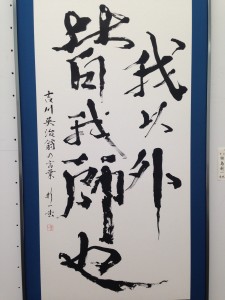 我以外
皆我師也
吉川英治翁の言葉